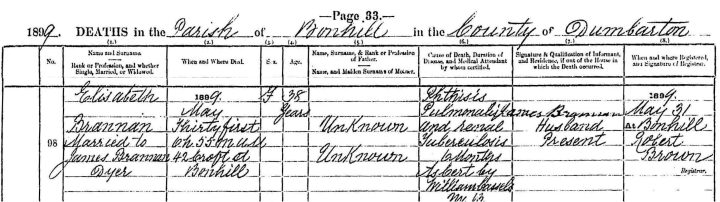 —Page 33.—
1899. DEATHS in the Parish of Bonhill in the County of Dumbarton
(1.) (2.) (3.) (4.) (5.) (6.) (7.) (8.)
No. Name and Surname. Rank or Profession, and whether Single, Married, or Widowed. When and Where Died. Sex. Age. Name, Surname, & Rank or Profession of Father. Name, and Maiden Surname of Mother. Cause of Death, Duration of Disease, and Medical Attendant by whom certified. Signature & Qualification of Informant, and Residence, if out of the House in which the Death occurred. When and where Registered, and Signature of Registrar.
Elisabeth 1899. F 38 Phthisis 1899.
May Years Pulmonalis James Brannan May 31
Brannan Thirty first Unknown and renal Husband At Bonhill
98 Married to 0h. 55m. A.M. Tuberculosis Present Robert
James Brannan 42 Croft St Unknown 6 Months Brown
Dyer Bonhill As Cert by Registrar.
William
M.B.